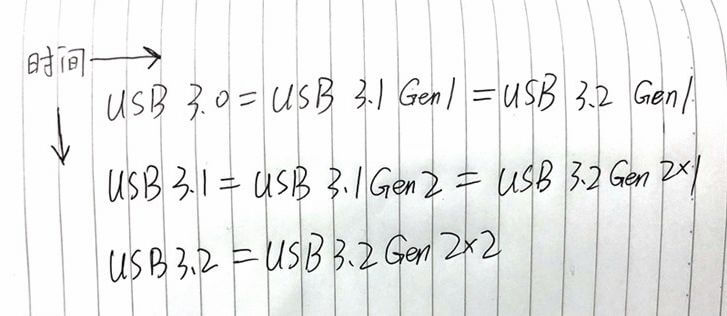 时间
USB 3.0 = USB 3.1 Gen1 = USB 3.2 Gen1
USB 3.1 = USB 3.1 Gen2 = USB 3.2 Gen 2×1
USB 3.2 = USB 3.2 Gen 2×2